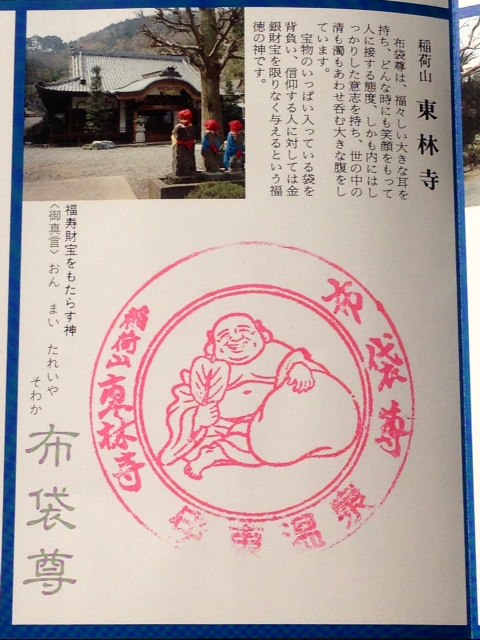 稲荷山 東林寺
布袋尊は、福々しい大きな耳を
持ち、どんな時にも笑顔をもって
人に接する態度、しかも内にはし
っかりした意志を持ち、世の中の
清も濁もあわせ呑む大きな腹をし
ています。
宝物のいっぱい入っている袋を
背負い、信仰する人に対しては金
銀財宝を限りなく与えるという福
徳の神です。
福寿財宝をもたらす神
〈御真言〉おん まい たれいや
そわか
布袋尊
布袋尊
稲荷山東林寺
温泉